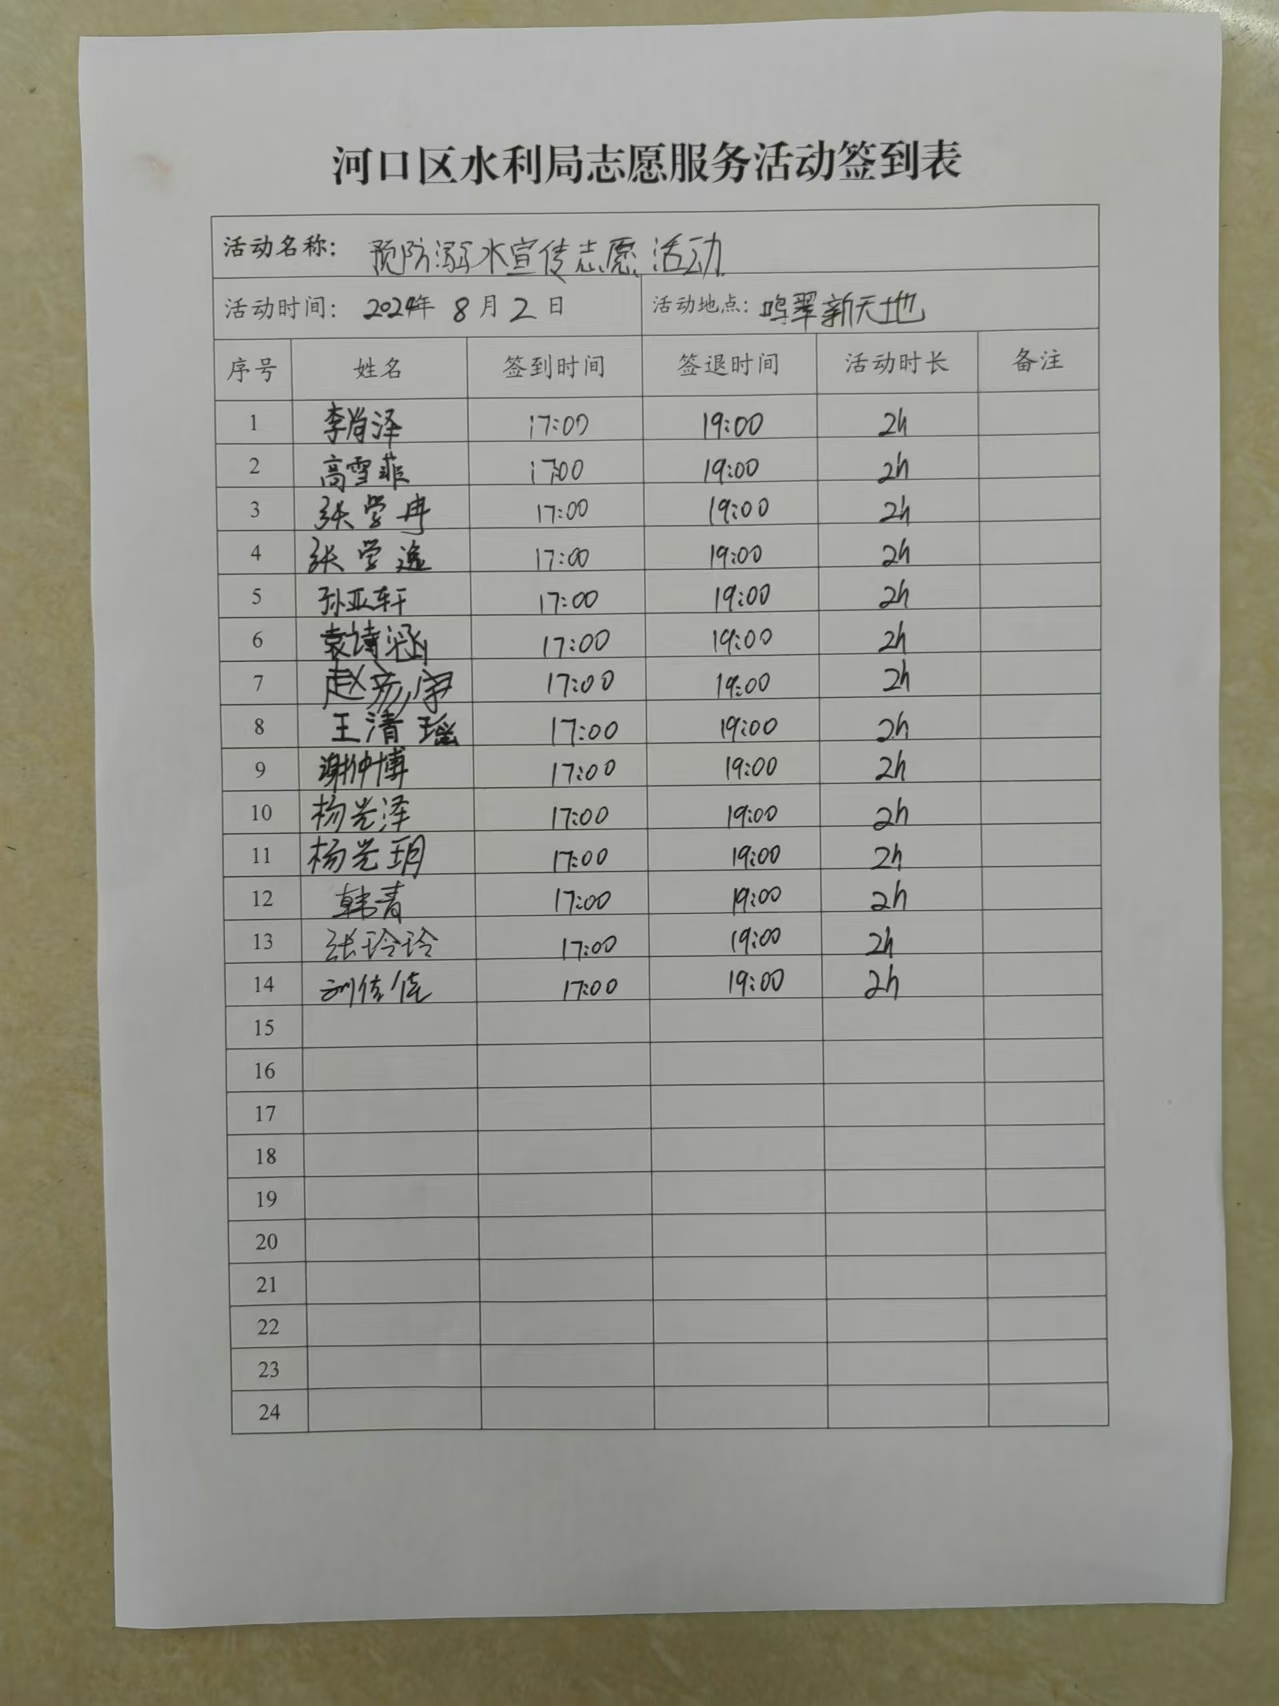 河口区水利局志愿服务活动签到表
活动名称： 预防溺水宣传志愿活动
活动时间： 2024年 8 月 2 日 活动地点：鸣翠新天地
序号 姓名 签到时间 签退时间 活动时长 备注
1 李尚泽 17:00 19:00 2h
2 高雪菲 17:00 19:00 2h
3 张学冉 17:00 19:00 2h
4 张学逸 17:00 19:00 2h
5 孙亚轩 17:00 19:00 2h
6 袁诗涵 17:00 19:00 2h
7 赵 17:00 19:00 2h
8 王清瑶 17:00 19:00 2h
9 谢仲博 17:00 19:00 2h
10 杨光泽 17:00 19:00 2h
11 杨光玥 17:00 19:00 2h
12 韩青 17:00 19:00 2h
13 张玲玲 17:00 19:00 2h
14 刘佳佳 17:00 19:00 2h
15
16
17
18
19
20
21
22
23
24